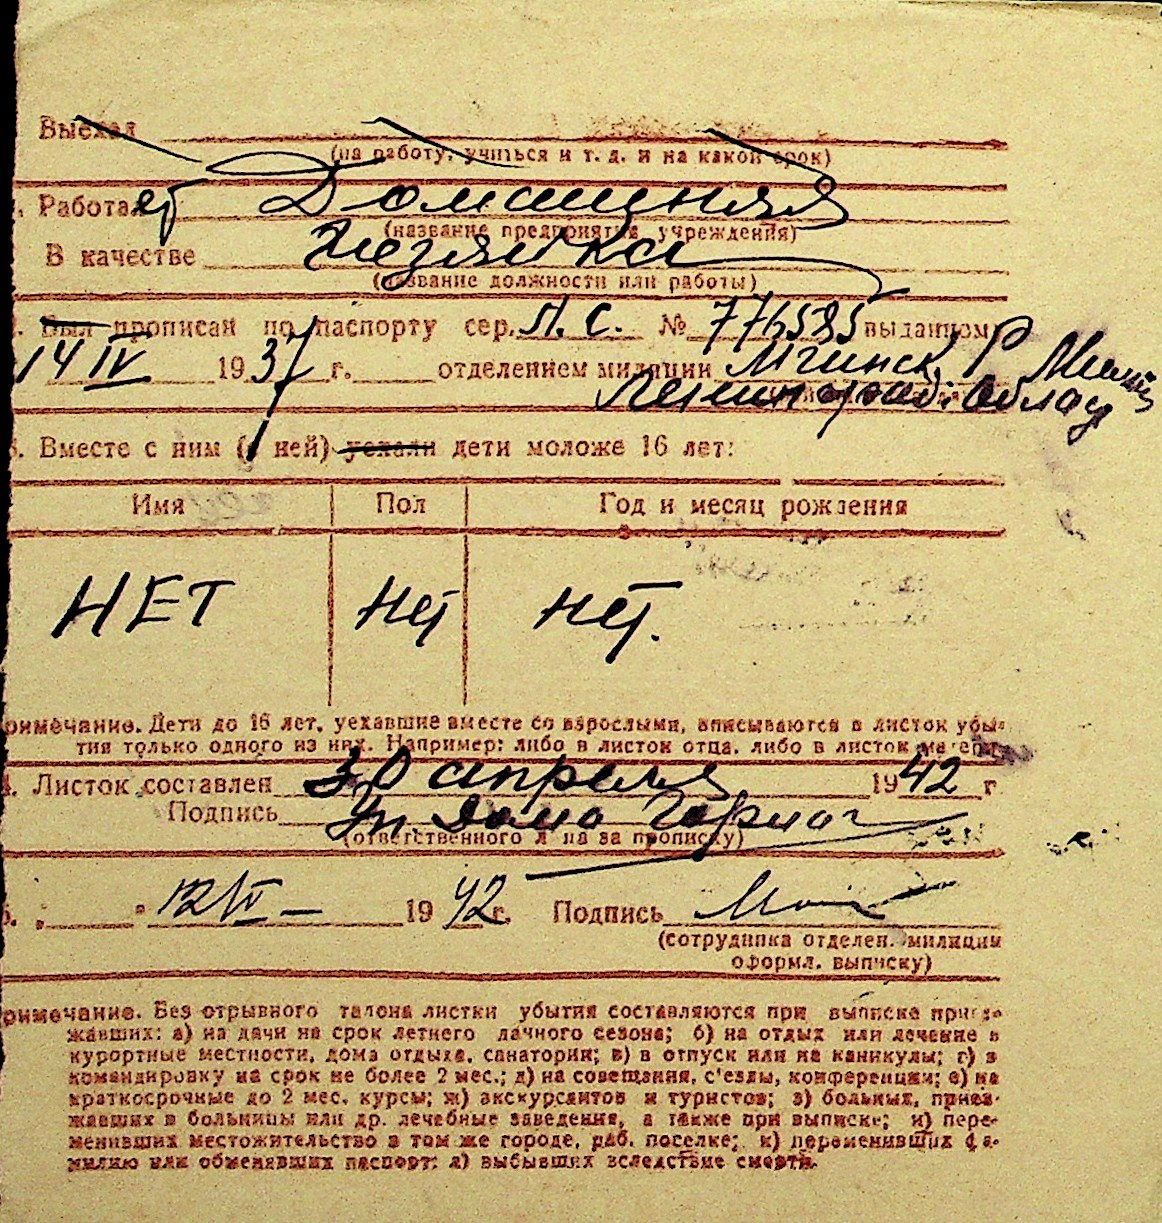 Выехал
(на работу, учиться и т. д. и на какой срок)
Работает Домашняя
(название предприятия учреждения)
В качестве хозяйка
(название должности или работы)
Был прописан по паспорту сер. Л. С. № 776585 выданном
14 IV 1937 г. отделением милиции Мгинск. Р Мили
Ленинград. Облас
Вместе с ним (ней) уехали дети моложе 16 лет:
Имя Пол Год и месяц рождения
НЕТ Нет Нет.
римечание. Дети до 16 лет, уехавшие вместе со взрослыми, вписываются в листок убы-
тия только одного из них. Например: либо в листок отца, либо в листок матери
Листок составлен 30 апреля 1942 г
Подпись Уп Дома
(ответственного л на за прописку)
12/VI 1942 г. Подпись
(сотрудника отделен. милиции
оформл. выписку)
римечание. Без отрывного талона листки убытия составляются при выписке приез-
жавших: а) на дачи на срок летнего дачного сезона; б) на отдых или лечение в
курортные местности, дома отдыха, санатории; в) в отпуск или на каникулы; г) в
командировку на срок не более 2 мес.; д) на совещания, с'езды, конференции; е) на
краткосрочные до 2 мес. курсы; ж) экскурсантов и туристов; з) больных, приез-
жавших в больницы или др. лечебные заведения, а также при выписке; и) пере-
менивших местожительство в том же городе, раб. поселке; к) переменивших фа-
милию или обменявших паспорт; л) выбывших вследствие смерти.